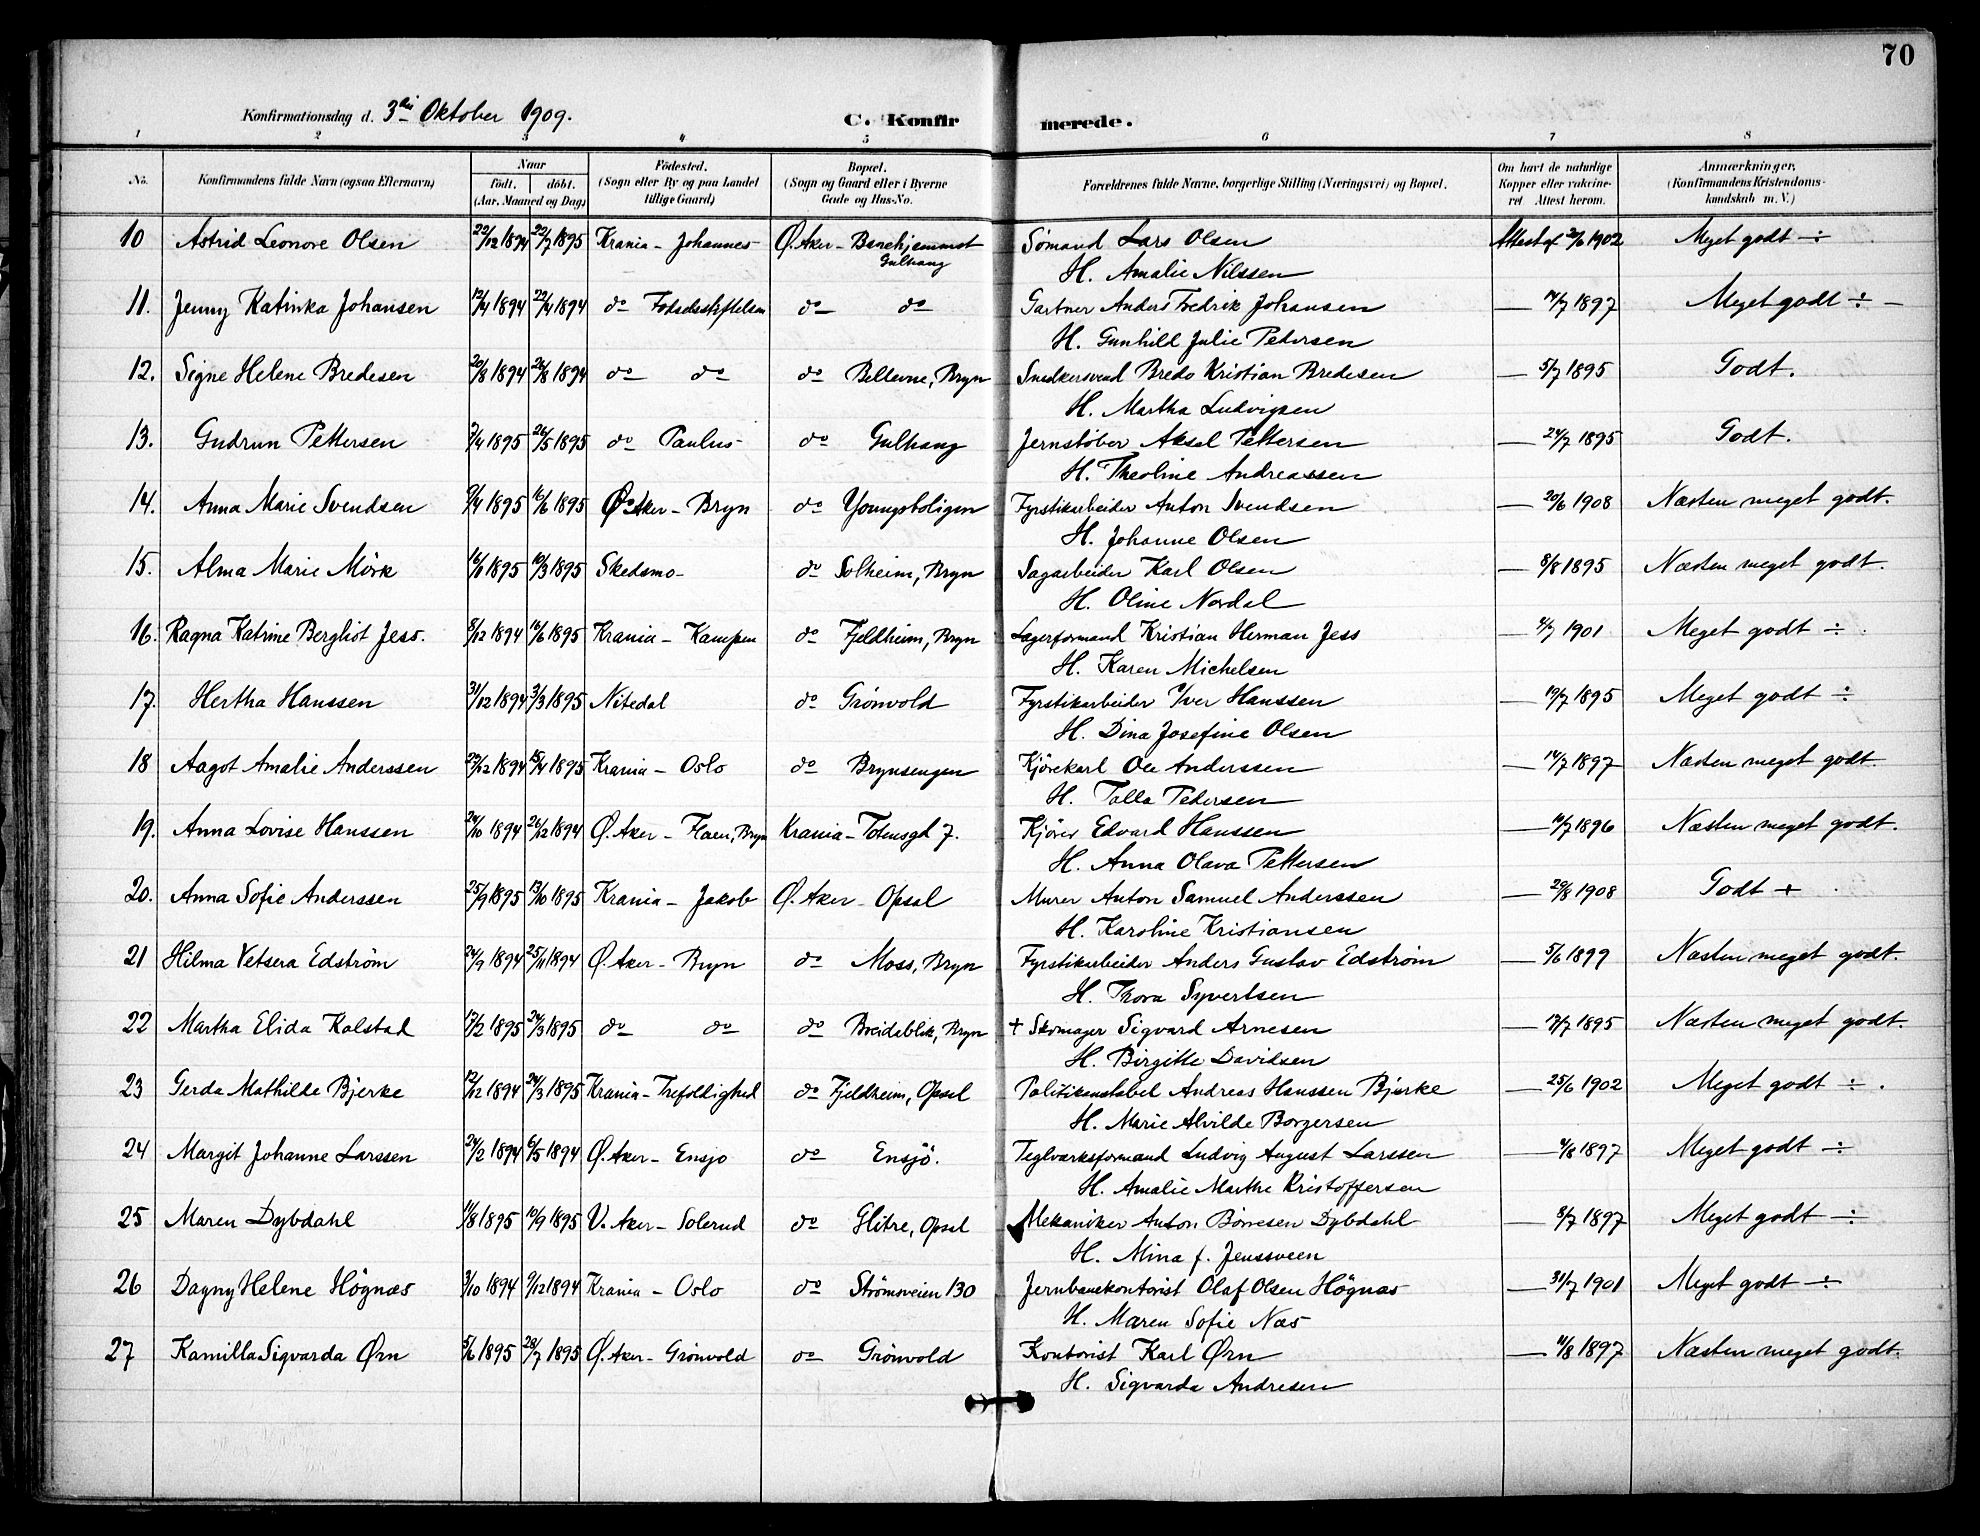 70
Konfirmationsdag d. 3die Oktober 1909. C. Konfirmerede.
1 2 3 4 5 6 7 8
No. Konfirmandens fulde Navn (ogsaa Efternavn) Naar födt. döbt. (Aar, Maaned og Dag) Födested. (Sogn eller By og paa Landet tillige Gaard) Bopæl. (Sogn og Gaard eller i Byerne Gade og Hus-No. Forældrenes fulde Navne, borgerlige Stilling (Næringsvei) og Bopæl. Om havt de naturlige Kopper eller vakcineret. Attest herom. Anmærkninger. (Konfirmandens Kristendomskundskab m. V.)
10 Astrid Leonore Olsen 22/12 1894 22/7 1895 Krania - Johannes- Ø. Aker - Barnehjemmet Gulhaug Sømand Lars Olsen Attest af 2/6 1902 Meget godt ÷
H. Amalie Nilssen
11. Jenny Katinka Johansen 12/4 1894 22/4 1894 do Fødselsstiftelsen do do Gartner Anders Fredrik Johansen — 14/7 1897 Meget godt ÷ —
H. Gunhild Julie Pedersen
12. Signe Helene Bredesen 20/8 1894 26/8 1894 do do do Bellevue, Bryn Snedkersvend Bredo Kristian Bredesen — 5/7 1895 Godt.
H. Martha Ludvigsen
13. Gudrun Pettersen 2/4 1895 26/5 1895 do Paulus- do Gulhaug Jernstøber Aksel Pettersen — 24/7 1895 Godt.
H. Theoline Andreassen
14. Anna Marie Svendsen 9/4 1895 16/6 1895 Ø. Aker - Bryn do Youngsboligen Fyrstikarbeider Anton Svendsen — 20/6 1908 Næsten meget godt.
H. Johanne Olsen
15. Alma Marie Mörk 16/1 1895 10/3 1895 Skedsmo- do Solheim, Bryn Sagarbeider Karl Olsen — 8/8 1895 Næsten meget godt.
H. Oline Nordal
16. Ragna Katrine Bergliot Jess. 8/12 1894 16/6 1895 Krania - Kampen do Fjeldheim, Bryn Lagerformand Kristian Herman Jess — 4/7 1901 Meget godt ÷
H. Karen Michelsen
17. Hertha Hanssen 31/12 1894 3/3 1895 Nitedal do Grönvold Fyrstikarbeider Iver Hanssen — 19/7 1895 Meget godt ÷
H. Dina Josefine Olsen
18 Aagot Amalie Anderssen 29/12 1894 15/4 1895 Krania - Oslo do Brynsengen Kjörekarl Ole Anderssen — 14/7 1897 Næsten meget godt.
H. Talla Pedersen
19. Anna Lovise Hanssen 24/10 1894 26/12 1894 Ø. Aker - Flaen, Bryn Krania - Totensgd 7. Kjörer Edvard Hanssen — 14/7 1896 Næsten meget godt.
H. Anna Olava Pettersen
20. Anna Sofie Anderssen 25/9 1895 13/10 1895 Krania - Jakob Ø. Aker - Opsal Murer Anton Samuel Anderssen — 29/8 1908 Godt +
H. Karoline Kristiansen
21 Hilma Vetsera Edström 24/9 1894 25/11 1894 Ø. Aker - Bryn do Moss, Bryn Fyrstikarbeider Anders Gustav Edström — 5/6 1899 Næsten meget godt.
H. Thora Syvertsen
22 Martha Elida Kolstad 17/2 1895 24/3 1895 do do do Breideblik, Bryn + Skomager Sigvard Arnesen — 12/7 1895 Næsten meget godt.
H. Birgitte Davidsen
23 Gerda Mathilde Bjerke 12/12 1894 24/3 1895 Krania - Trefoldighed do Fjeldheim, Opsal Politikonstabel Andreas Hanssen Bjerke — 25/6 1902 Meget godt ÷ .
H. Marie Alvilde Borgersen
24 Margit Johanne Larssen 24/2 1894 6/5 1894 Ø. Aker - Ensjo do Ensjö. Teglværksformand Ludvig August Larssen — 4/8 1897 Meget godt ÷
H. Amalie Marthe Kristoffersen
25 Maren Dybdahl 11/8 1895 10/9 1895 V. Aker - Solerud do Glitre, Opsal Mekaniker Anton Börresen Dybdahl — 8/7 1897 Meget godt ÷
H. Mina f. Jenssveen
26 Dagny Helene Högnæs 3/10 1894 9/12 1894 Krania - Oslo do Strömsveien 130 Jernbanekontorist Olaf Olsen Högnæs — 31/7 1901 Meget godt ÷
H. Maren Sofie Næs
27 Kamilla Sigvarda Ørn 5/6 1895 28/7 1895 Ø. Aker - Grönvold do Grönvold Kontorist Karl Ørn — 11/8 1897 Næsten meget godt.
H. Sigvarda Andresen